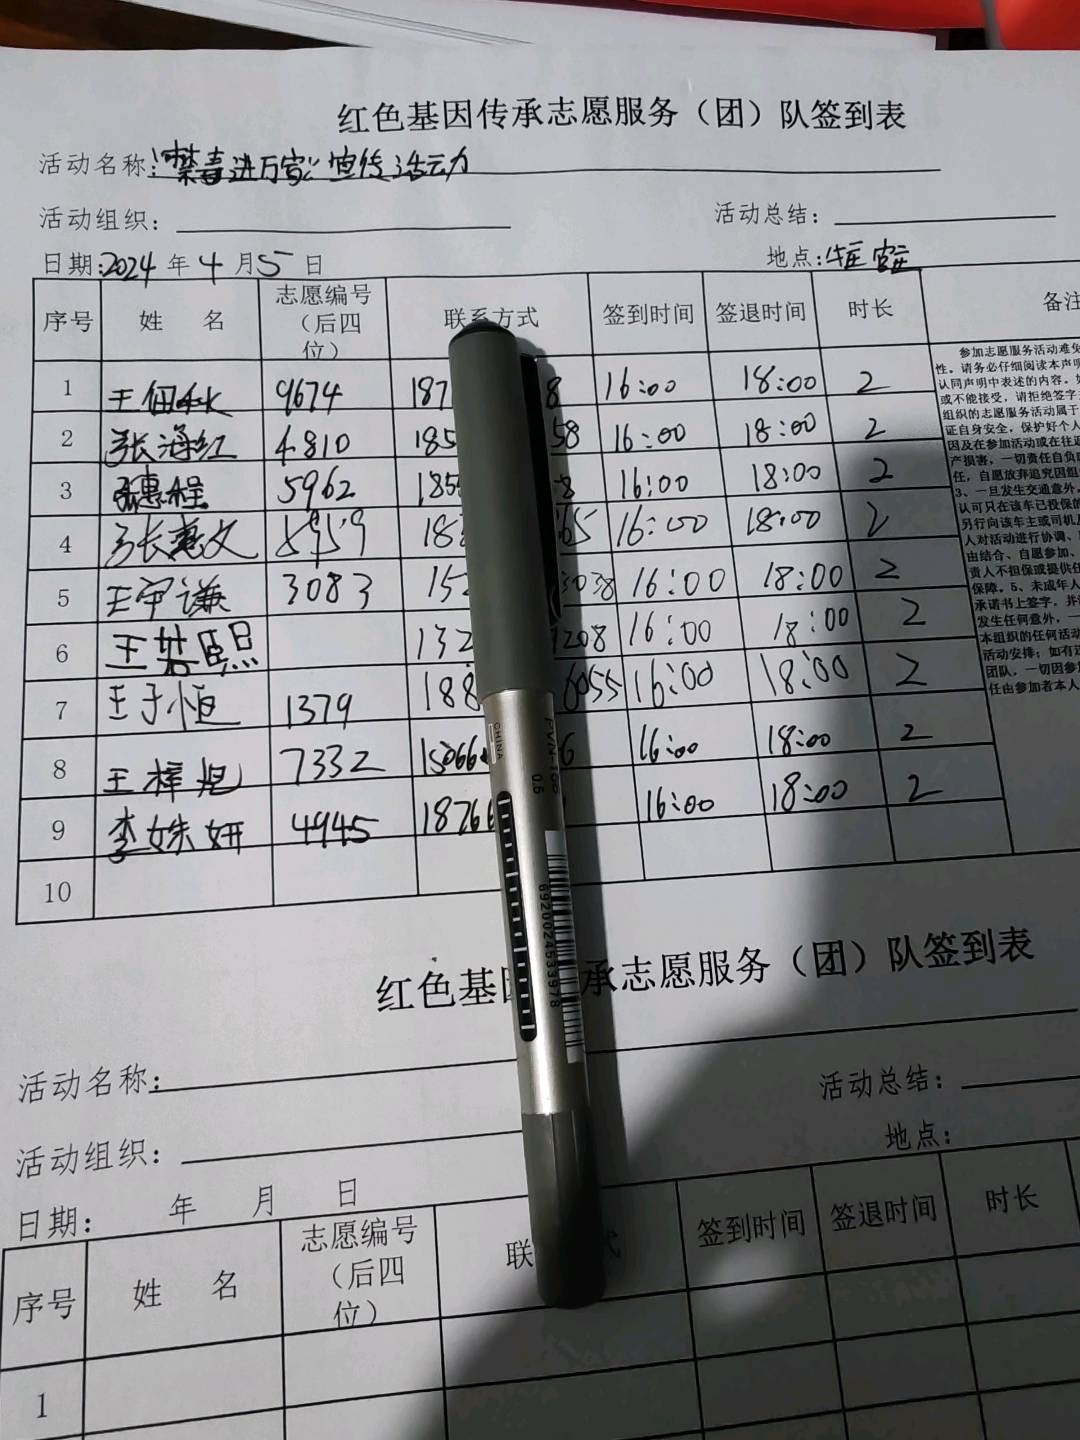 红色基因传承志愿服务（团）队签到表
活动名称:“禁毒进万家”宣传活动
活动组织: 活动总结:
日期:2024年4月5日 地点:
序号 姓 名 志愿编号（后四位） 联系方式 签到时间 签退时间 时长 备注
1 9674 187 8 16:00 18:00 2
2 张海红 4810 185 58 16:00 18:00 2
3 5962 185 8 16:00 18:00 2
4 张惠文 5959 18 65 16:00 18:00 2
5 王宇谦 3083 15 3038 16:00 18:00 2
6 王若熙 132 1208 16:00 18:00 2
7 王子恒 1379 188 6055 16:00 18:00 2
8 王梓旭 7332 15066 6 16:00 18:00 2
9 李姝妍 4945 18766 16:00 18:00 2
10
参加志愿服务活动难免
性。请务必仔细阅读本声明
认同声明中表述的内容。
或不能接受，请拒绝签字
组织的志愿服务活动属于
证自身安全，保护好个人
因及在参加活动或在往返
产损害，一切责任自负
任，自愿放弃追究因组
3、一旦发生交通意外，
认可只在该车已投保的
另行向该车主或司机
人对活动进行协调、
由结合、自愿参加、
责人不担保或提供任
保障。5、未成年人
承诺书上签字，并
发生任何意外，一
本组织的任何活动
活动安排；如有
团队，一切因参加
任由参加者本人
CHINA
PVN-100
0.5
6920024533978
红色基 承志愿服务（团）队签到表
活动名称:
活动总结:
活动组织:
地点:
日期: 年 月 日
序号 姓 名 志愿编号（后四位） 联 签到时间 签退时间 时长
1